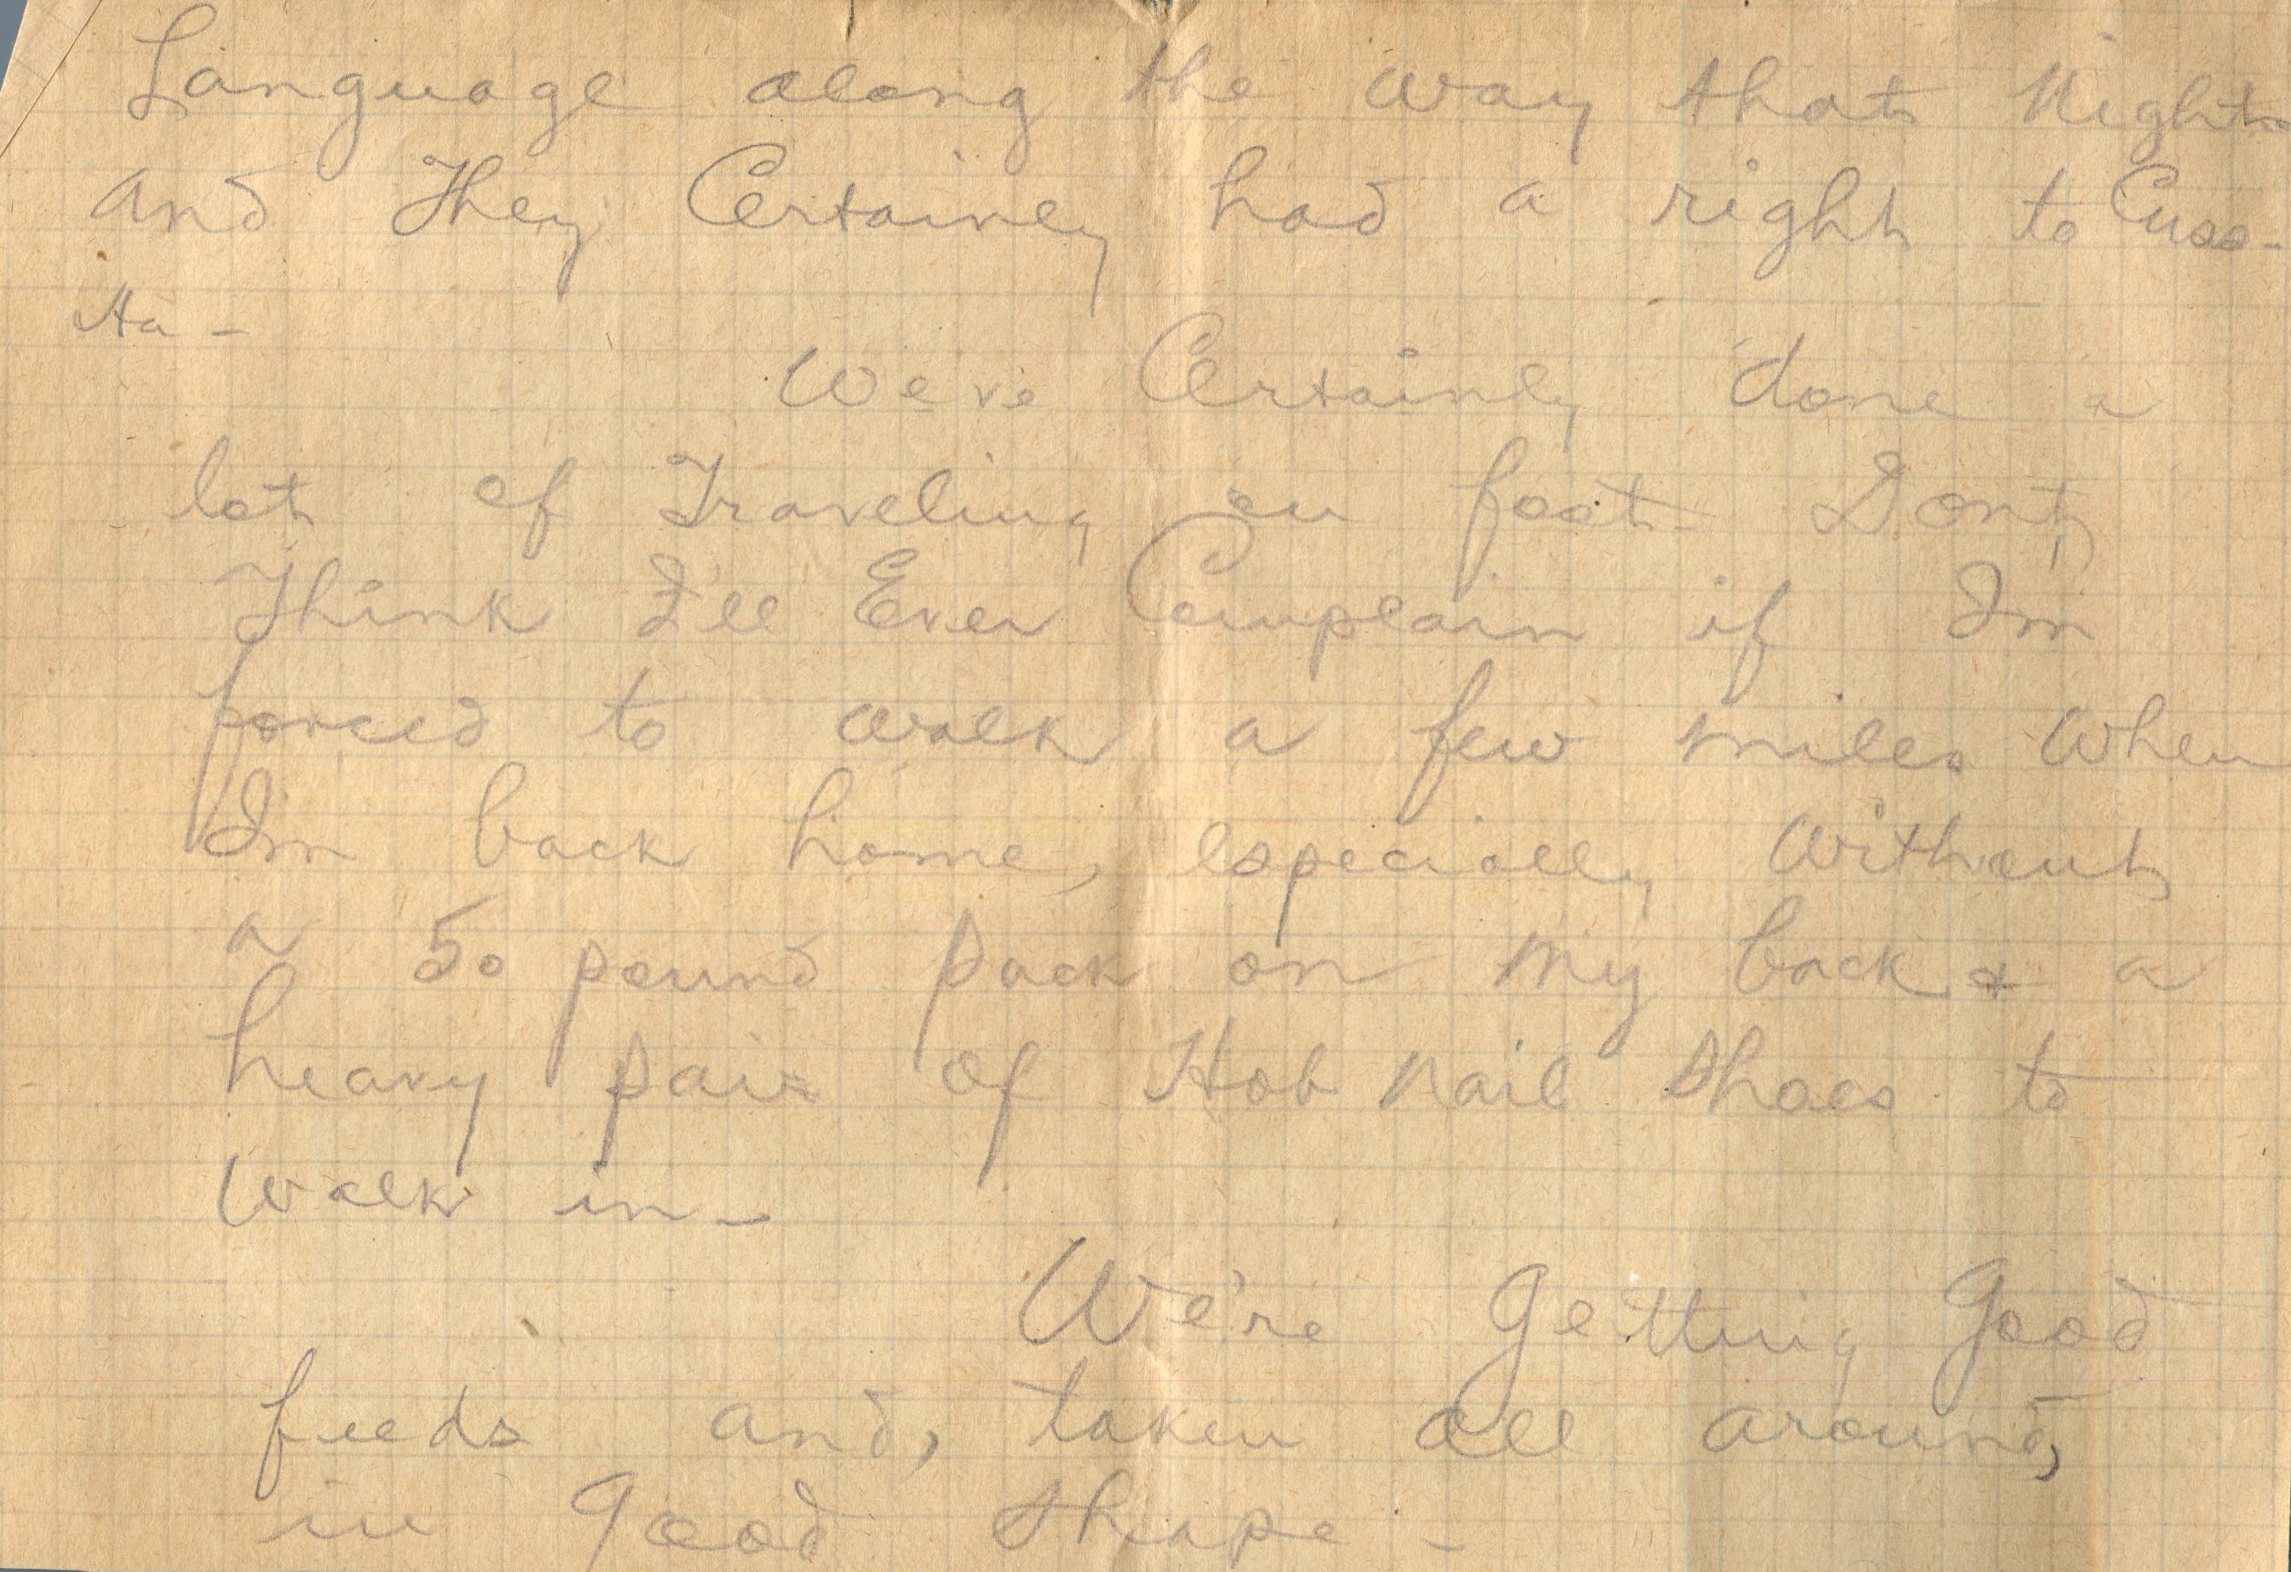 Language along the way that Night
and They Certainly had a right to Cuss-
Ha -
We've Certainly done a
lot of Traveling on foot - Dont
Think I'll Ever Complain if I'm
forced to walk a few miles When
I'm back home, especially Without
a 50 pound pack on my back & a
heavy pair of Hob Nail shoes to
Walk in -
We're Getting Good
feeds and, taken all around,
in good shape -